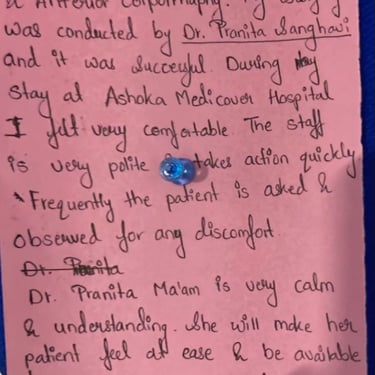 & Anterior Colporrhaphy. My surgery
was conducted by Dr. Pranita Sanghavi
and it was successful. During my
stay at Ashoka Medicover Hospital
I felt very comfortable. The staff
is very polite & takes action quickly
* Frequently the patient is asked &
observed for any discomfort.
Dr. Pranita
Dr. Pranita Ma'am is very calm
& understanding. She will make her
patient feel at ease & be available